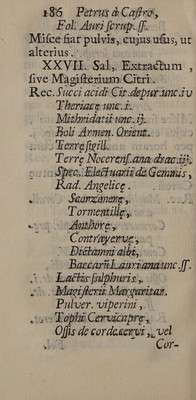 186 Petrus à Castro,
Fol. Auri scrup. ſſ.
Misce fiat pulvis, cujus usus, ut
alterius.
XXVII. Sal, Extractum,
sive Magisterium Citri.
Rec. Succi acidi Cit. depur. unc. iv
Theriacę unc. i.
Mithridatii unc. ij.
Boli Armen. Orient.
Terrę sigill.
Terrę Nocerens. ana drac. iij.
Spec. Electuarii de Gemmis,
Rad. Angelicę.
Scorzonerę,
Tormentillę,
Anthorę,
Contrayervę,
Dictamni albi,
Baccarũ Lauri ana unc. ſſ.
Lactis sulphuris,
Magisterii Margaritar.
Pulver. viperini,
Tophi Cervicaprę,
Ossis de corde cervi, vel
Cor-